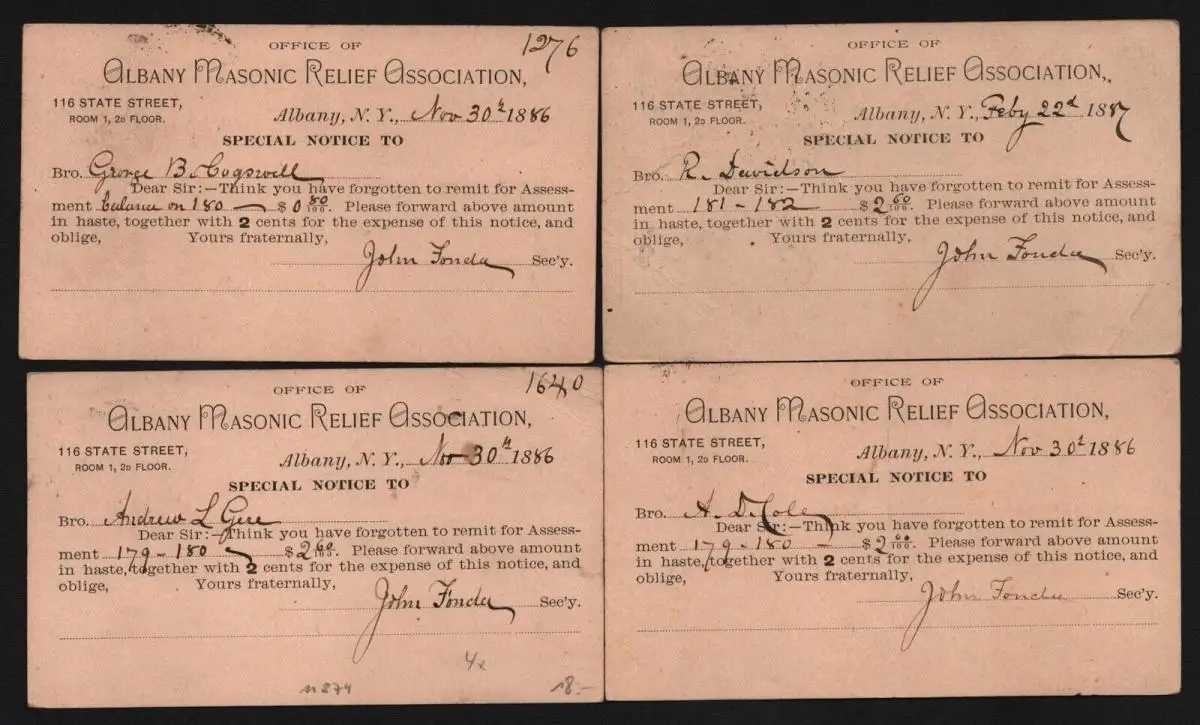 1276
OFFICE OF
ALBANY MASONIC RELIEF ASSOCIATION,
116 STATE STREET,
ROOM 1, 2D FLOOR.
Albany, N. Y., Nov 30th 1886
SPECIAL NOTICE TO
Bro. George B. Cogswell
Dear Sir:—Think you have forgotten to remit for Assess-
ment balance on 180 — $ 0 80/100. Please forward above amount
in haste, together with 2 cents for the expense of this notice, and
oblige, Yours fraternally,
John Fonda Sec'y.
OFFICE OF
ALBANY MASONIC RELIEF ASSOCIATION,
116 STATE STREET,
ROOM 1, 2D FLOOR.
Albany, N. Y., Feby 22d 1887
SPECIAL NOTICE TO
Bro. R. Davidson
Dear Sir:—Think you have forgotten to remit for Assess-
ment 181 - 182 $ 2 60/100. Please forward above amount
in haste, together with 2 cents for the expense of this notice, and
oblige, Yours fraternally,
John Fonda Sec'y.
1640
OFFICE OF
ALBANY MASONIC RELIEF ASSOCIATION,
116 STATE STREET,
ROOM 1, 2D FLOOR.
Albany, N. Y., Nov 30th 1886
SPECIAL NOTICE TO
Bro. Andrew L Gere
Dear Sir:—Think you have forgotten to remit for Assess-
ment 179 - 180 — $ 2 60/100. Please forward above amount
in haste, together with 2 cents for the expense of this notice, and
oblige, Yours fraternally,
John Fonda Sec'y.
4x
n874 18.-
OFFICE OF
ALBANY MASONIC RELIEF ASSOCIATION,
116 STATE STREET,
ROOM 1, 2D FLOOR.
Albany, N. Y., Nov 30th 1886
SPECIAL NOTICE TO
Bro. A. D. Cole
Dear Sir:—Think you have forgotten to remit for Assess-
ment 179 - 180 — $ 2 00/100. Please forward above amount
in haste, together with 2 cents for the expense of this notice, and
oblige, Yours fraternally,
John Fonda Sec'y.